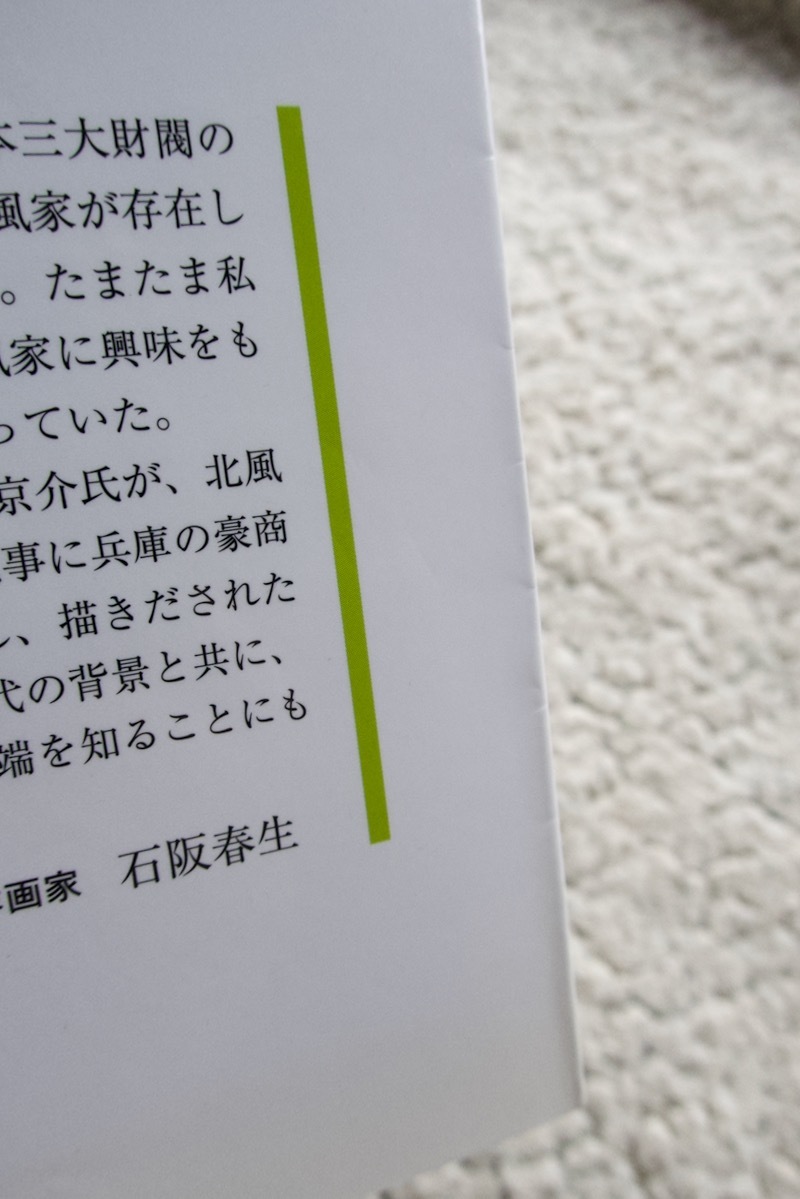 本三大財閥の
風家が存在し
。たまたま私
風家に興味をも
っていた。
京介氏が、北風
事に兵庫の豪商
し、描きだされた
代の背景と共に、
端を知ることにも
画家 石阪春生